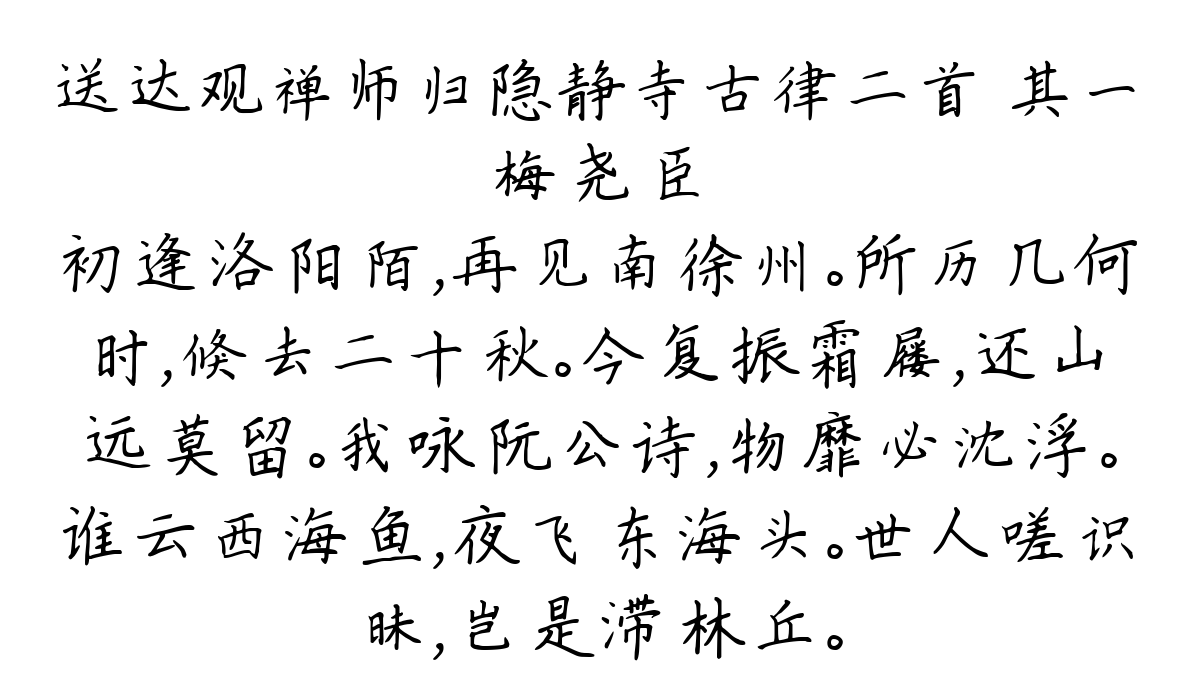 送达观禅师归隐静寺古律二首 其一
梅尧臣
初逢洛阳陌,再见南徐州。所历几何
时,倏去二十秋。今复振霜屦,还山
远莫留。我咏阮公诗,物靡必沈浮。
谁云西海鱼,夜飞东海头。世人嗟识
昧,岂是滞林丘。